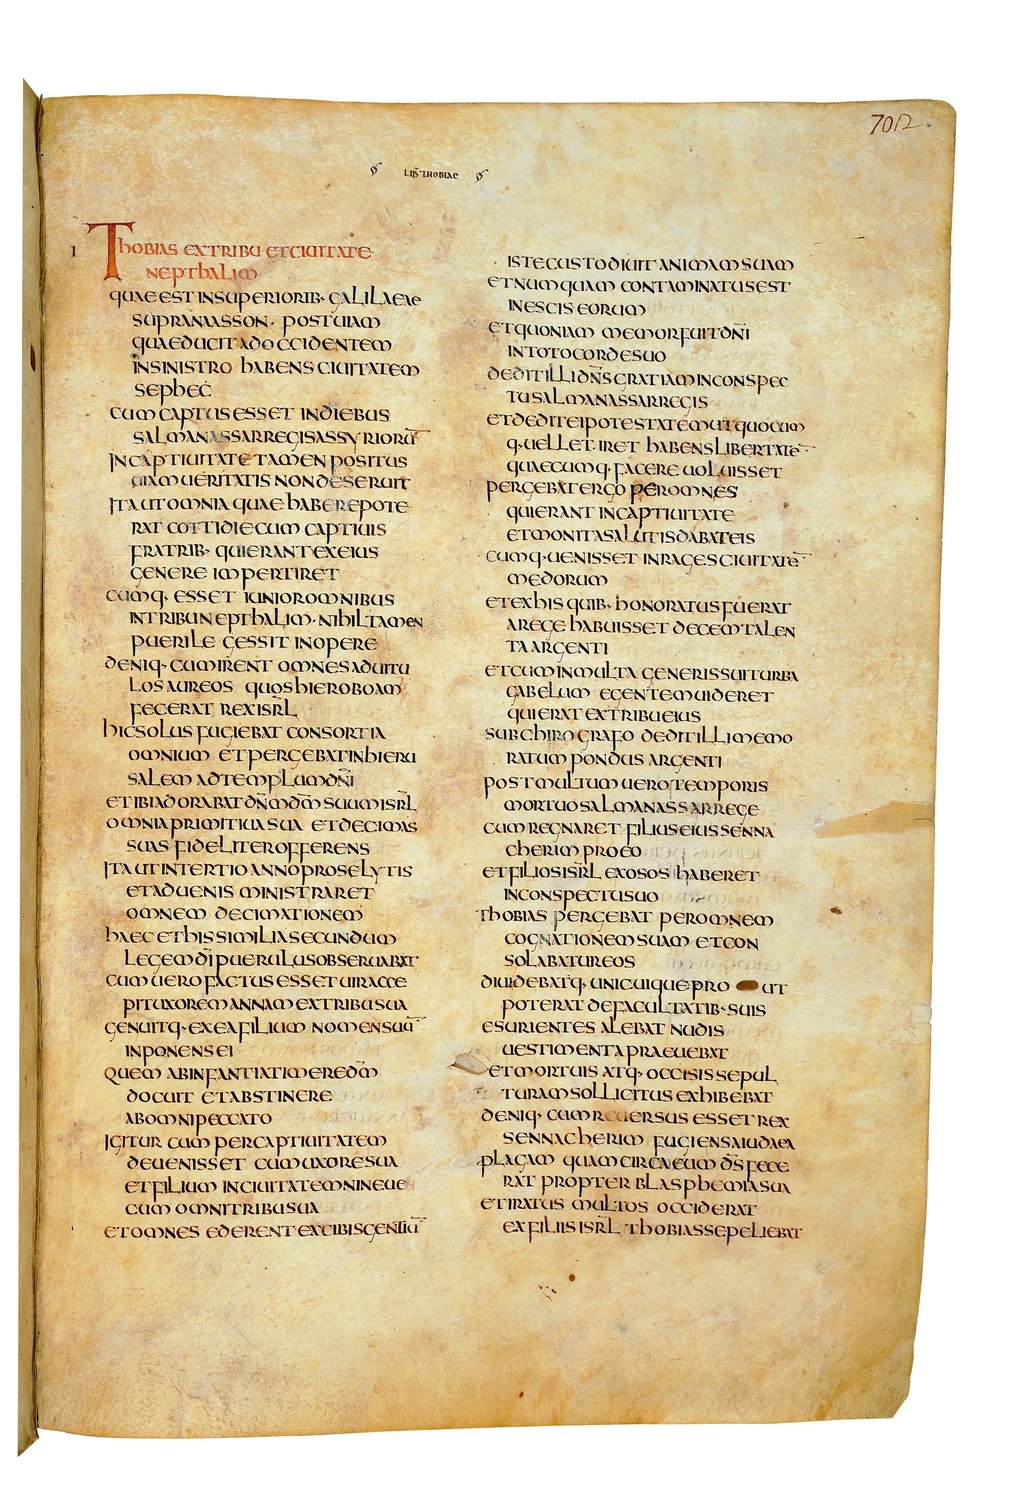 702
LIB THOBIAE
I
THOBIAS EXTRIBU ETCIUITATE
NEPTHALIM
QUAE EST INSUPERIORIB· GALILAEAE
SUPRANAASSON· POSTUIAM
QUAEDUCIT ADOCCIDENTEM
INSINISTRO HABENS CIUITATEM
SEPHEC
CUM CAPTUS ESSET INDIEBUS
SALMANASSARREGISASSYRIORŪ
INCAPTIUITATE TAMEN POSITUS
UIAM UERITATIS NON DESERUIT
ITA UT OMNIA QUAE HABEREPOTE
RAT COTTIDIE CUM CAPTIUIS
FRATRIB· QUIERANTEXEIUS
GENERE IMPERTIRET
CUMQ· ESSET IUNIOROMNIBUS
INTRIBUNEPTHALIM· NIHILTAMEN
PUERILE GESSIT INOPERE
DENIQ· CUMIRENT OMNESADUITU
LOSAUREOS QUOSHIEROBOAM
FECERAT REXISRL̄
HICSOLUS FUGIEBAT CONSORTIA
OMNIUM ETPERGEBATINHIERU
SALEM ADTEMPLUMDN̄I
ETIBIADORABAT DN̄MDM̄ SUUMISRL̄
OMNIAPRIMITIUASUA ETDECIMAS
SUAS FIDELITEROFFERENS
ITA UT INTERTIO ANNO PROSELYTIS
ETADUENIS MINISTRARET
OMNEM DECIMATIONEM
HAEC ETHISSIMILIASECUNDUM
LEGEM DĪ PUERULUSOBSERUABAT
CUM UERO FACTUS ESSET UIRACCE
PITUXOREMANNAM EXTRIBUSUA
GENUITQ· EXEAFILIUM NOMENSUŪ
INPONENS EI
QUEM ABINFANTIATIMEREDM̄
DOCUIT ETABSTINERE
ABOMNIPECCATO
IGITUR CUM PERCAPTIUITATEM
DEUENISSET CUMUXORESUA
ETFILIUM INCIUITATEMNINEUE
CUM OMNITRIBUSUA
ETOMNES EDERENTEXCIBISGENTIŪ
ISTECUSTODIUIT ANIMAMSUAM
ETNUMQUAM CONTAMINATUSEST
INESCIS EORUM
ETQUONIAM MEMORFUITDN̄I
INTOTOCORDESUO
DEDITILLIDN̄SGRATIAMINCONSPEC
TUSALMANASSARREGIS
ETDEDITEIPOTESTATEMUTQUOCUM
Q·UELLET IRET HABENSLIBERTATĒ
QUAECUMQ· FACERE UOLUISSET
PERGEBATERGO PEROMNES
QUIERANT INCAPTIUITATE
ETMONITASALUTISDABATEIS
CUMQ·UENISSET INRAGESCIUITATĒ
MEDORUM
ETEXHIS QUIB· HONORATUSFUERAT
AREGE HABUISSET DECEMTALEN
TAARGENTI
ETCUMINMULTA GENERISSUITURBA
GABELUM EGENTEMUIDERET
QUIERAT EXTRIBUEIUS
SUBCHIROGRAFO DEDITILLIMEMO
RATUMPONDUS ARGENTI
POSTMULTUMUEROTEMPORIS
MORTUOSALMANASSARREGE
CUMREGNARET FILIUSEIUSSENNA
CHERIMPROEO
ETFILIOSISRL̄ EXOSOS HABERET
INCONSPECTUSUO
THOBIAS PERGEBAT PEROMNEM
COGNATIONEMSUAM ETCON
SOLABATUREOS
DIUIDEBATQ· UNICUIQUEPRO UT
POTERAT DEFACULTATIB· SUIS
ESURIENTES ALEBAT NUDIS
UESTIMENTAPRAEUEBAT
ETMORTUIS ATQ· OCCISISSEPUL
TURAMSOLLICITUS EXHIBEBAT
DENIQ· CUMREUERSUS ESSETREX
SENNACHERIM FUGIENSAIUDAEA
PLAGAM QUAMCIRCAEUM DS̄FECE
RAT PROPTERBLASPHEMIASUA
ETIRATUS MULTOS OCCIDERAT
EXFILIISISRL̄ THOBIASSEPELIEBAT